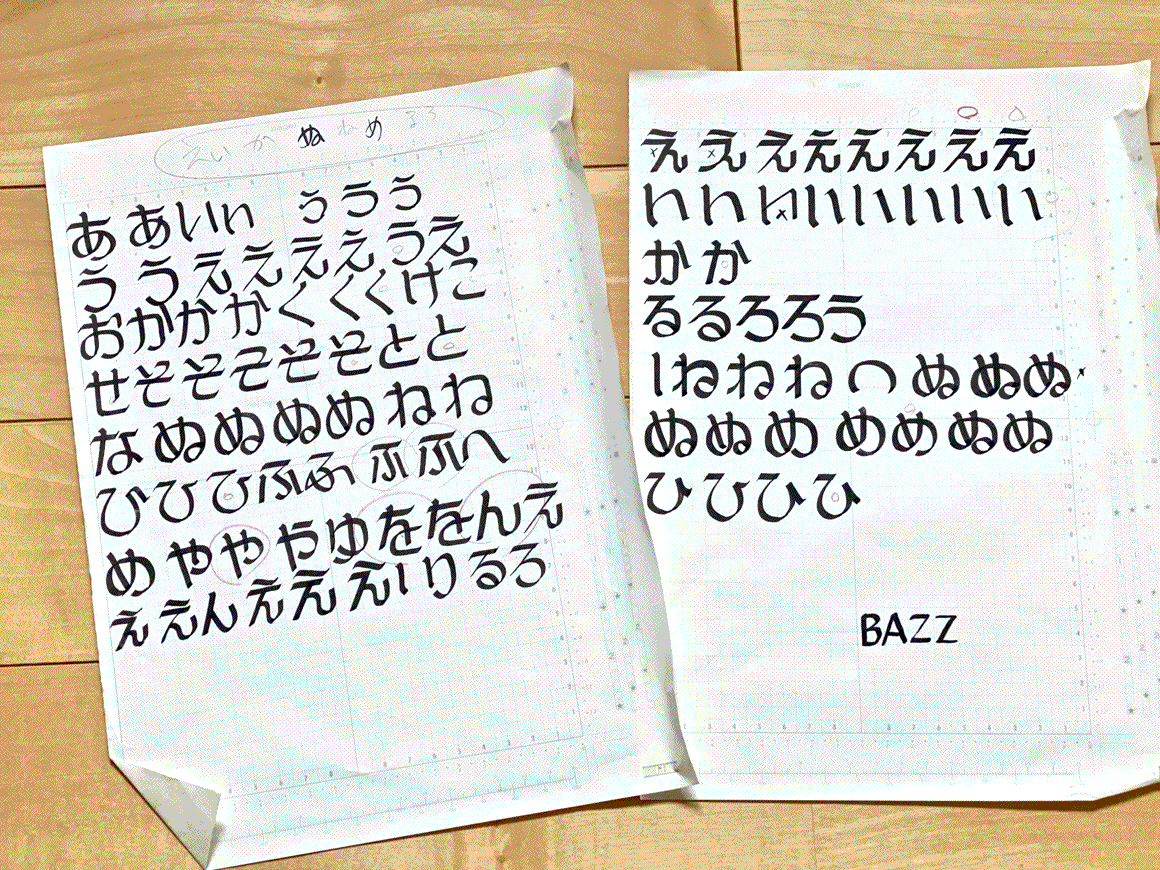 えいかぬねめるろ
ああいいううう
ううええええうえ
おかかかくくくけこ
せそそそそそとと
なぬぬぬぬねね
ひひひふふふふへ
めやややゆををんえ
ええんえええいりるろ
ええええええええ
いいいいいいいい
かか
るるろろう
ねねねぬぬぬ
ぬぬめめめぬぬ
ひひひひ
BAZZ